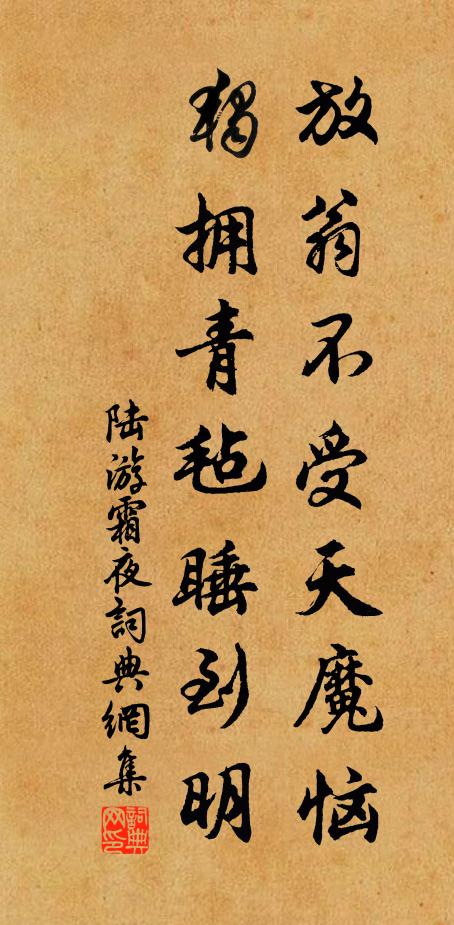 放翁不受天魔恼
独拥青毡睡到明
陆游霜夜詞典網集
詞典网印